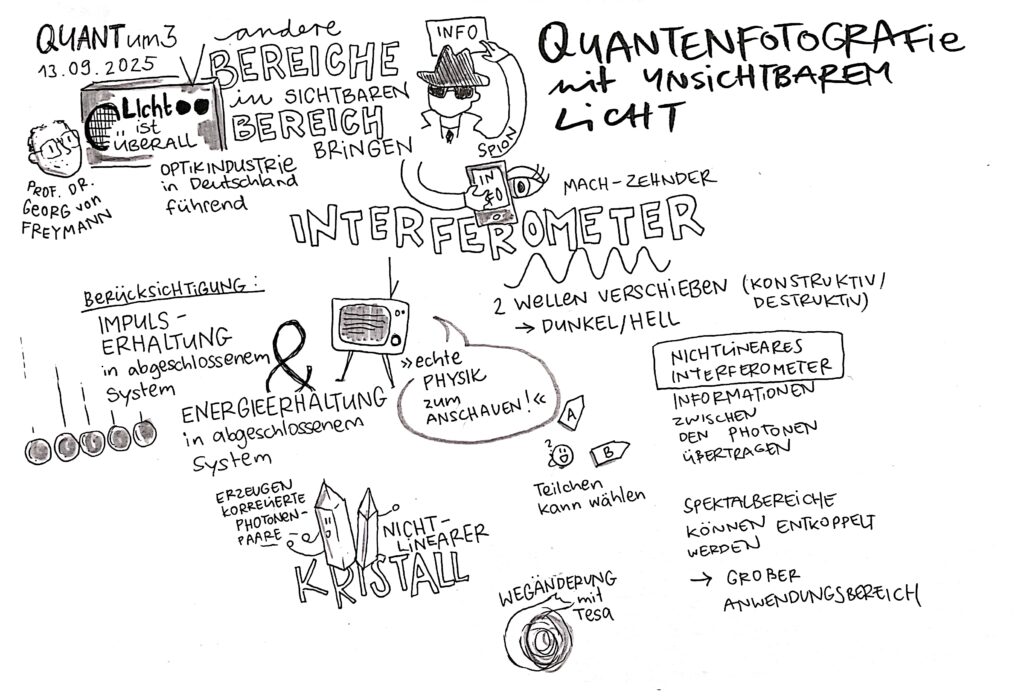 QUANTum3
13.09.2025
LIcht
ist
ÜBERALL
PROF. DR.
GEORG von
FREYMANN
andere
BEREICHE
in SICHTBAREN
BEREICH
BRINGEN
OPTIKINDUSTRIE
in Deutschland
führend
INFO
SPION
IN
FO
QUANTENFOTOGRAFie
mit UNSICHTBAREM
LiCHT
MACH-ZEHNDER
INTERFEROMETER
2 WELLEN VERSCHIEBEN (KONSTRUKTIV/
DESTRUKTIV)
→ DUNKEL/HELL
BERÜCKSICHTIGUNG:
IMPULS-
ERHALTUNG
in abgeschlossenem
System
&
ENERGIEERHALTUNG
in abgeschlossenem
System
»echte
PHYSIK
zum
ANSCHAUEN!«
A
?
B
Teilchen
kann wählen
NICHTLINEARES
INTERFEROMETER
INFORMATIONEN
ZWISCHEN
DEN PHOTONEN
ÜBERTRAGEN
SPEKTALBEREICHE
KÖNNEN ENTKOPPELT
WERDEN
→ GROßER
ANWENDUNGSBEREICH
ERZEUGEN
KORRELIERTE
PHOTONEN-
PAARE
NICHT-
LINEARER
KRISTALL
WEGÄNDERUNG
mit
Tesa